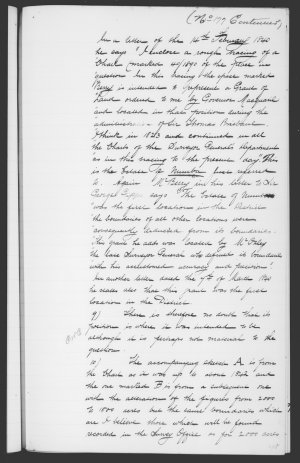 (No 177 Continued)
In a letter of the 14th February 1840
he says "I enclose a rough tracing of a
Chart (marked 49/1890 of the place in
question. In this tracing the space marked
Berry is intended to represent a Grant of
Land ordered to me by Governor Macquarie
and located in that position during the
administration of Sir Thomas Brisbane
I think in 1823 and continued in all
the Charts of the Surveyor General's department
as in this tracing to the present day. This
is the Estate of Numba here referred
to. Again Mr Berry in his letter to Sir
George Gipps says "The Estate of Numba
was the first location in the District
the boundaries of all other locations were
consequently extended from its boundaries.
This grant he adds was located by Mr Oxley
the late Surveyor General who defined its boundaries
with his accustomed accuracy and precision".
In another letter dated the 9th of March 1841
he states also that this grant was the first
location in the District.
9) There is therefore no doubt that its
position is where it was intended to be
although it is perhaps not material to the
question.
10) The accompanying sketch A is from
the Chart as it was up to about 1842 and
the one marked B is from a subsequent one
with the alterations of the figures from 2000
to 1800 acres but the same boundaries which
are I believe those which will be found
recorded in the Survey Office as for 2000 acres